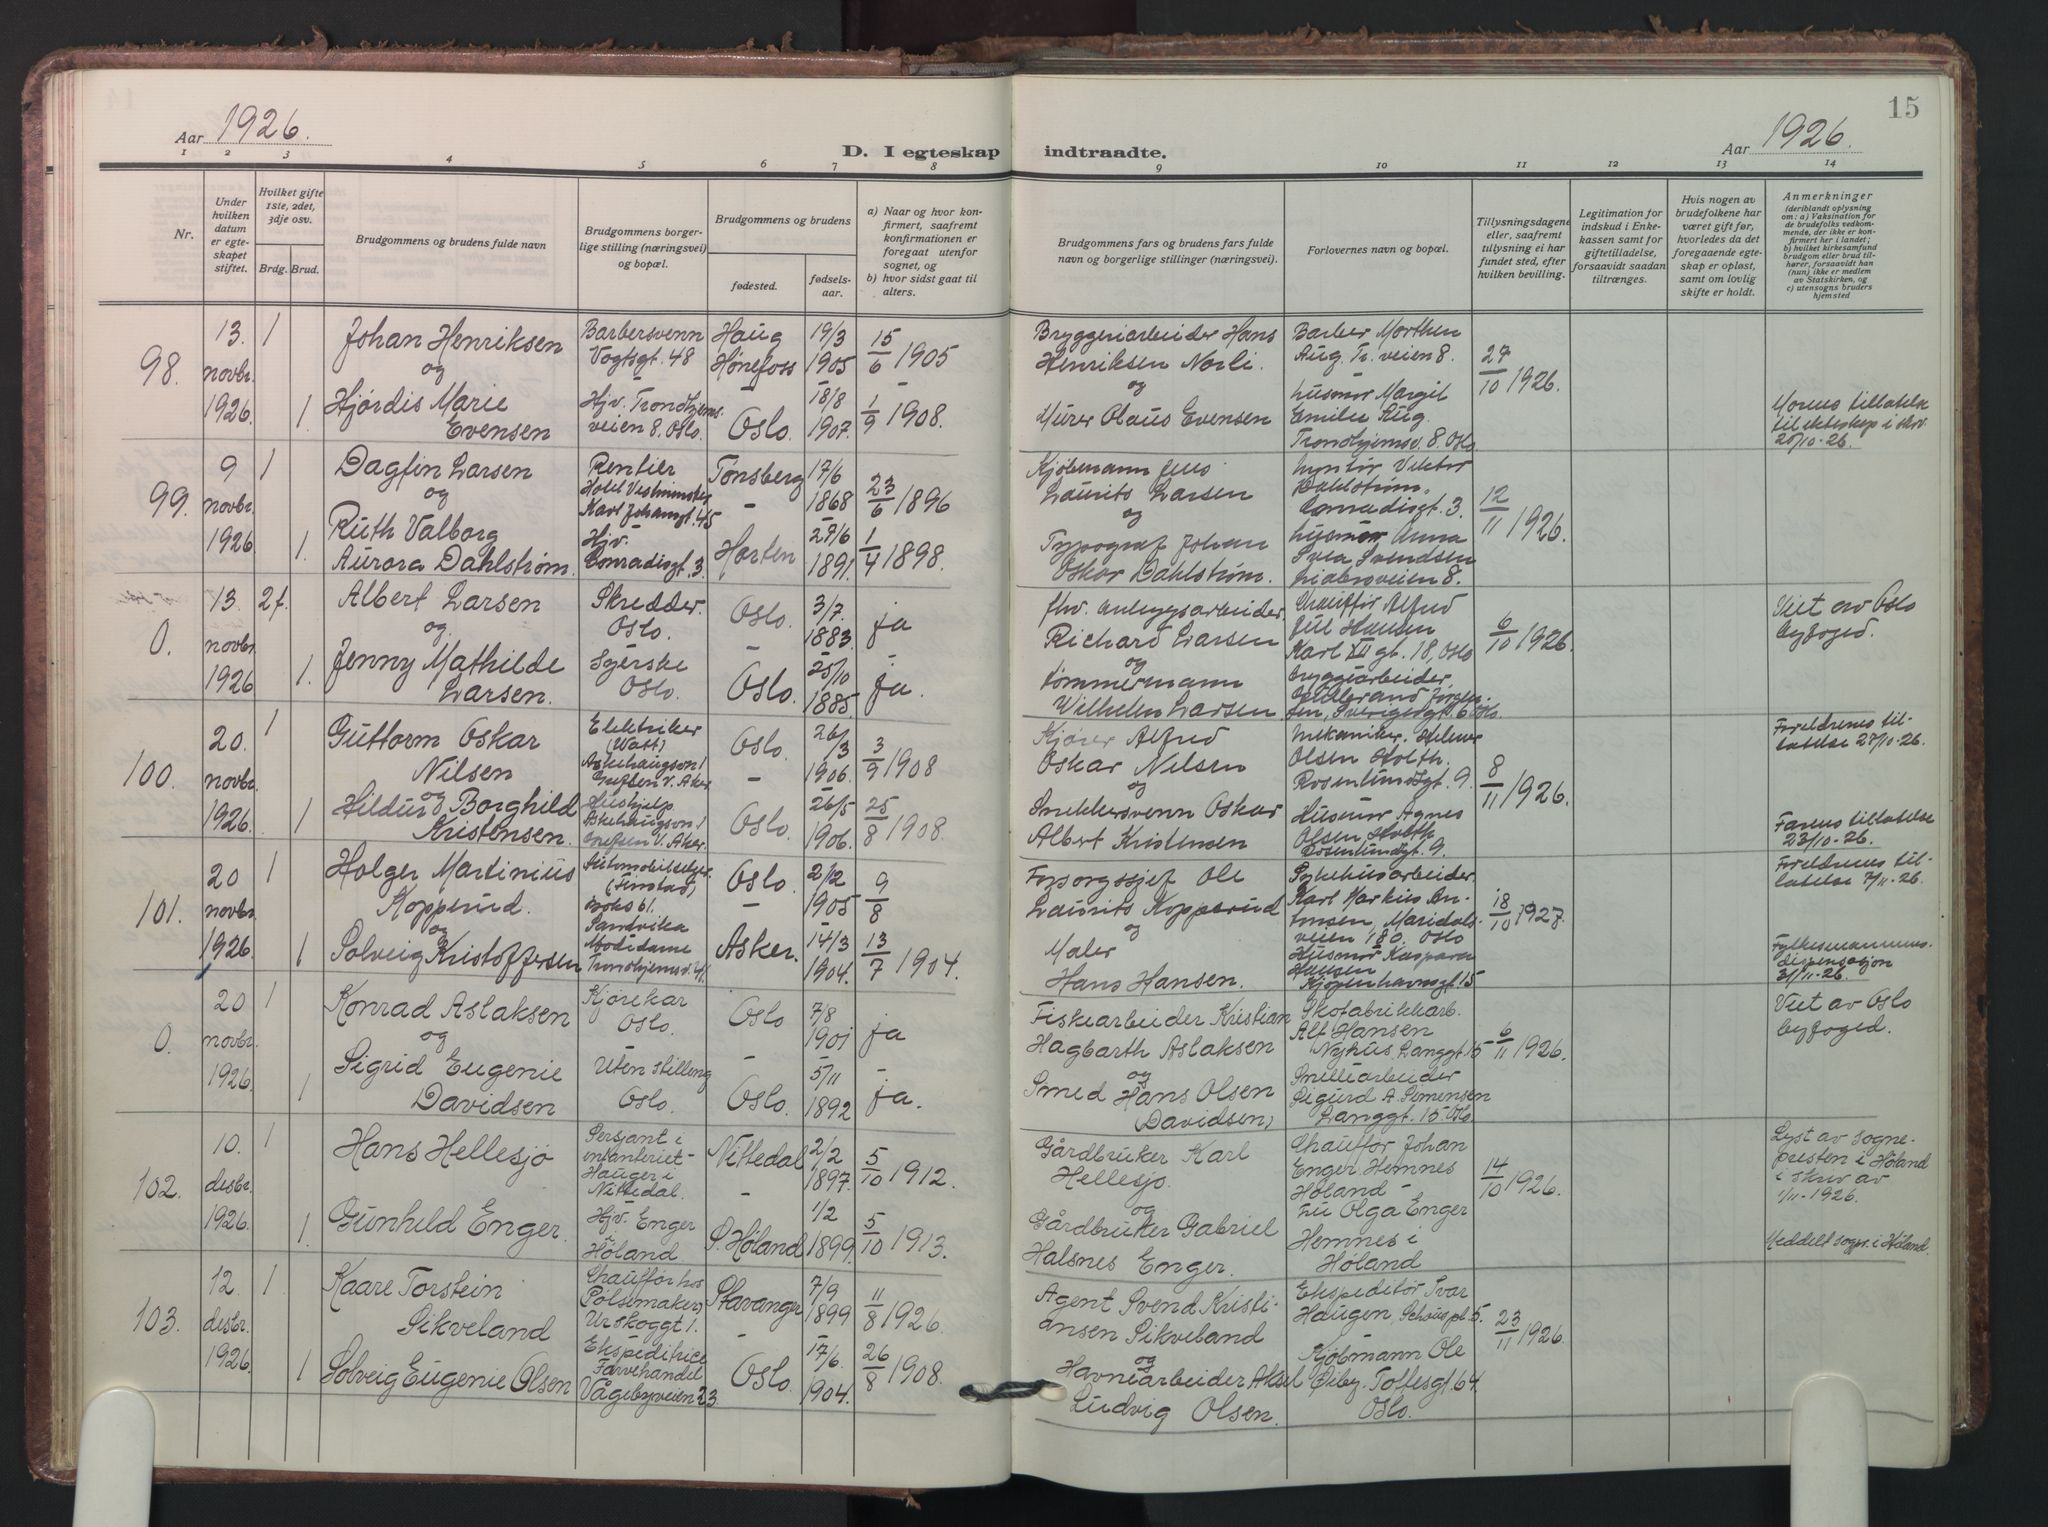 15
Aar 1926.
D. I egteskap indtraadte.
Aar 1926.
1 2 3 4 5 6 7 8 9 10 11 12 13 14
Nr.
Under hvilken datum er egteskapet stiftet.
Hvilket gifte 1ste, 2det, 3dje osv.
Brdg. Brud.
Brudgommens og brudens fulde navn
Brudgommens borgerlige stilling (næringsvei) og bopæl.
Brudgommens og brudens
fødested.
fødselsaar.
a) Naar og hvor konfirmert, saafremt konfirmationen er foregaat utenfor sognet, og
b) hvor sidst gaat til alters.
Brudgommens fars og brudens fars fulde navn og borgerlige stillinger (næringsvei).
Forlovernes navn og bopæl.
Tillysningsdagene eller, saafremt tillysning ei har fundet sted, efter hvilken bevilling.
Legitimation for indskud i Enkekassen samt for giftetilladelse, forsaavidt saadan tiltrænges.
Hvis nogen av brudefolkene har været gift før, hvorledes da det foregaaende egteskap er opløst, samt om lovlig skifte er holdt.
Anmerkninger
(deriblandt oplysning om: a) Vaksination for de brudefolks vedkommende, der ikke er konfirmert her i landet;
b) hvilket kirkesamfund brudgom eller brud tilhører, forsaavidt han (hun) ikke er medlem av Statskirken, og
c) utensogns bruders hjemsted
98.
13. novbr. 1926
1
Johan Henriksen
og
Barbersvenn
Vogtsgt. 48
Haug
Hønefoss
19/3 1905
15/6 1905
Bryggeriarbeider Hans
Henriksen Norli.
og
Barber Morthen
Aug. Tr. veien 8.
27/10 1926.
1.
Hjørdis Marie
Evensen
Hjv. Trondhjems
veien 8. Oslo.
Oslo.
18/8 1907.
1/9 1908.
Murer Olaus Evensen
Husmor Margit
Emilie Aug.
Trondhjemsv. 8. Oslo
Morens tillatelse
til ekteskap i skr.
20/10-26.
99.
9 novbr. 1926
1
Dagfin Larsen
og
Rentier
Hotel Vestminster
Karl Johansgt. 45
Tønsberg
17/6 1868
23/6 1896
Kjøbmann Jens
Laurits Larsen
og
Viktor
Dahlstrøm,
Conradisgt. 3.
12/11 1926.
1.
Ruth Valborg
Aurora Dahlstrøm.
Hjv.
Conradisgt. 3
Horten
27/6 1891.
1/4 1898.
Typograf Johan
Oskar Dahlstrøm.
Husmor Anna
Svea Svendsen
Liabroveien 8.
0.
13. novbr. 1926
2 f.
Albert Larsen
og
Skredder.
Oslo.
Oslo.
3/7 1883.
ja
fhv. anleggsarbeider.
Richard Larsen
og
Chauffør Alfred
Hansen
Karl XII gt. 18, Oslo
6/10 1926.
Viet av Oslo
byfoged.
1.
Jenny Mathilde
Larsen.
Syerske
Oslo.
Oslo.
25/10 1885.
ja.
tømmermann
Wilhelm Larsen
byggearbeider,
Hildebrand Jørgen-
sen, Sverigesgt. 6 Oslo.
100.
20. novbr. 1926.
1
Guttorm Oskar
Nilsen
og
Elektriker
(Watt)
Askehaugsvn. 1
Grefsen V. Aker
Oslo.
26/3 1906.
3/9 1908
Kjører Alfred
Oskar Nilsen
og
Mekaniker. Helmer
Olsen Holth.
Rosenlundsgt. 9.
8/11 1926.
Foreldrenes til-
latelse 27/10-26.
1
Hildur Borghild
Kristensen.
Hushjelp
Askehaugsvn. 1
Grefsen V. Aker.
Oslo.
26/5 1906.
25/8 1908.
Snekkersvenn Oskar
Albert Kristensen
Husmor Agnes
Olsen Holth
Rosenlundsgt. 9.
Farens tillatelse
23/10-26.
101.
20 novbr. 1926
1
Holger Martinius
Kopperud.
og
Automobilselger.
(Finstad)
boks 61.
Sandvika
Oslo.
2/12 1905
9/8
Forsorgssjef Ole
Laurits Kopperud
og
Sykehusarbeider.
Karl Markus An-
tonsen, Maridals-
veien 180. Oslo
18/10 1927.
Foreldrenes til-
latelse 7/11-26.
1
Solveig Kristoffersen
Modedame
Trondhjemsv. 41.
Asker.
14/3 1904.
13/7 1904.
Maler
Hans Hansen.
Husmor Kaspara
Hansen
Kjøpenhavnsgt. 15
Fylkesmannens
dispensasjon
3/11-26.
0.
20 novbr. 1926.
1
Konrad Aslaksen
og
Kjørekar
Oslo.
Oslo
7/8 1901
ja
Fiskearbeider Kristian
Hagbarth Aslaksen
og
Skofabrikkarb.
Alf Hansen
Nyhus, Langgt. 15
6/11 1926.
Viet av Oslo
byfoged.
1
Sigrid Eugenie
Davidsen
Uten stilling
Oslo.
Oslo.
5/11 1892
ja.
Smed Hans Olsen
(Davidsen)
Sigurd A. Simensen
Langgt. 15 Oslo.
102.
10. desbr. 1926.
1
Hans Hellesjø
Sersjant i
infanteriet-
Hauger i
Nittedal.
Nittedal
2/2 1897.
5/10 1912.
Gårdbruker Karl
Hellesjø.
og
Chauffør Johan
Enger, Hemnes
Høland -
14/10 1926.
Lyst av sogne-
presten i Høland
i skriv av
1/11-1926.
1.
Gunhild Enger.
Hjv. Enger
Høland
S. Høland
1/2 1899.
5/10 1913.
Gårdbruker Gabriel
Halsnes Enger.
Olga Enger
Hemnes i
Høland
Meddelt sogpr. i Høland.
103.
12. desbr. 1926
1
Kaare Torstein
Sikveland
Chauffør hos
Pølsemaker,
Urskoggt 1.
Stavanger
7/9 1899
11/8 1926.
Agent Svend Kristi-
ansen Sikveland
og
Ekspeditør Ivar
Haugen, Schouspl. 5.
23/11 1926.
1
Solveig Eugenie Olsen
Ekspeditrice
Farvehandel
Vågebyveien 23
Oslo.
17/6. 1904.
26/8 1908.
Havnearbeider Aksel
Ludvig Olsen.
Kjøbmann Ole
Øiby. Toftesgt. 64
Oslo.